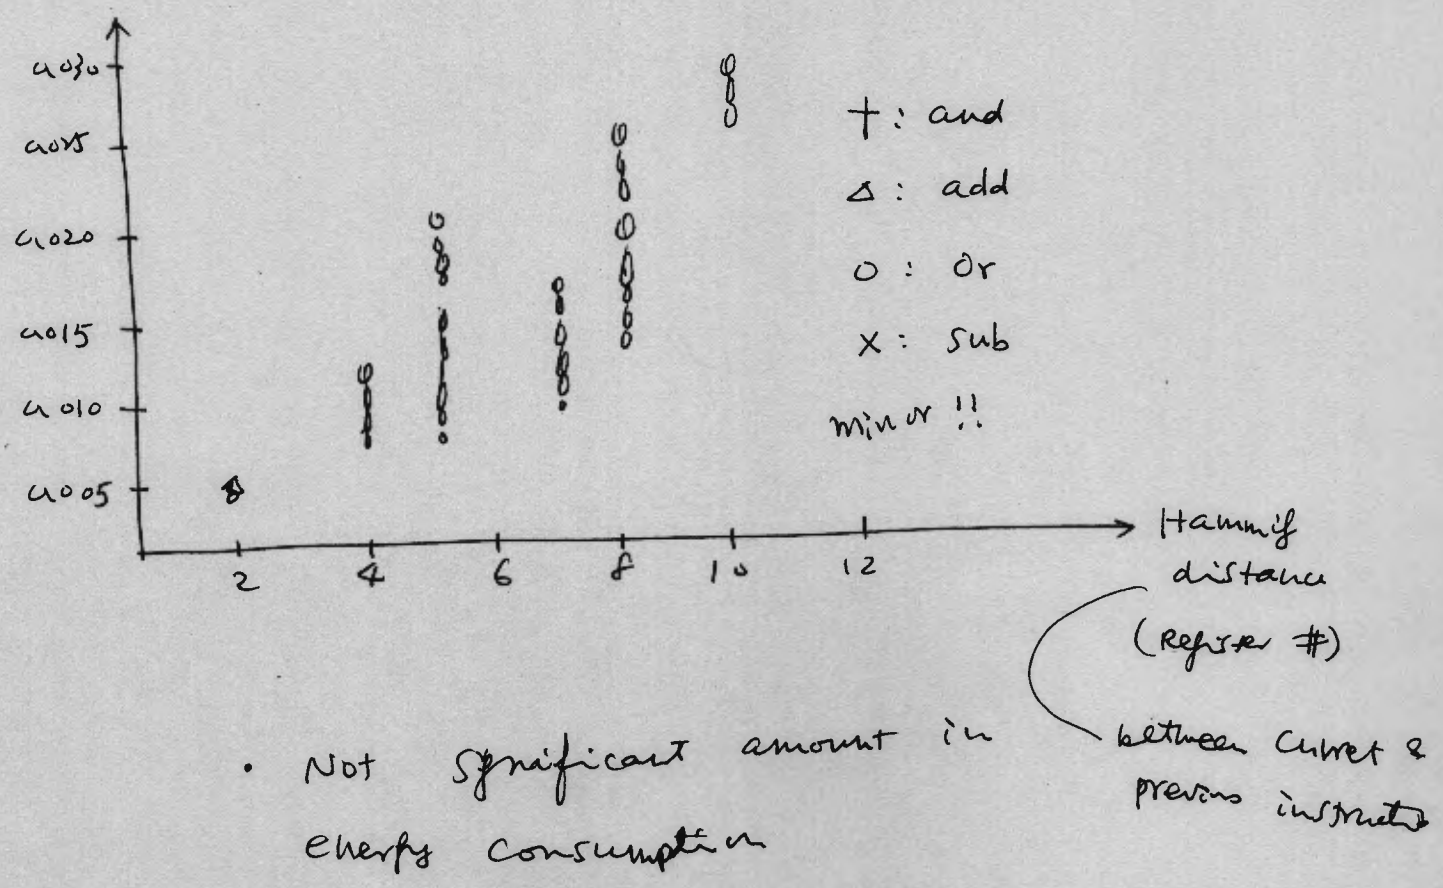 0.030
0.025
0.020
0.015
0.010
0.005
2 4 6 8 10 12
+: and
Δ: add
o: or
x: sub
minor !!
Hamming
distance
(Register #)
between current &
previous instruction
• Not significant amount in
energy consumption